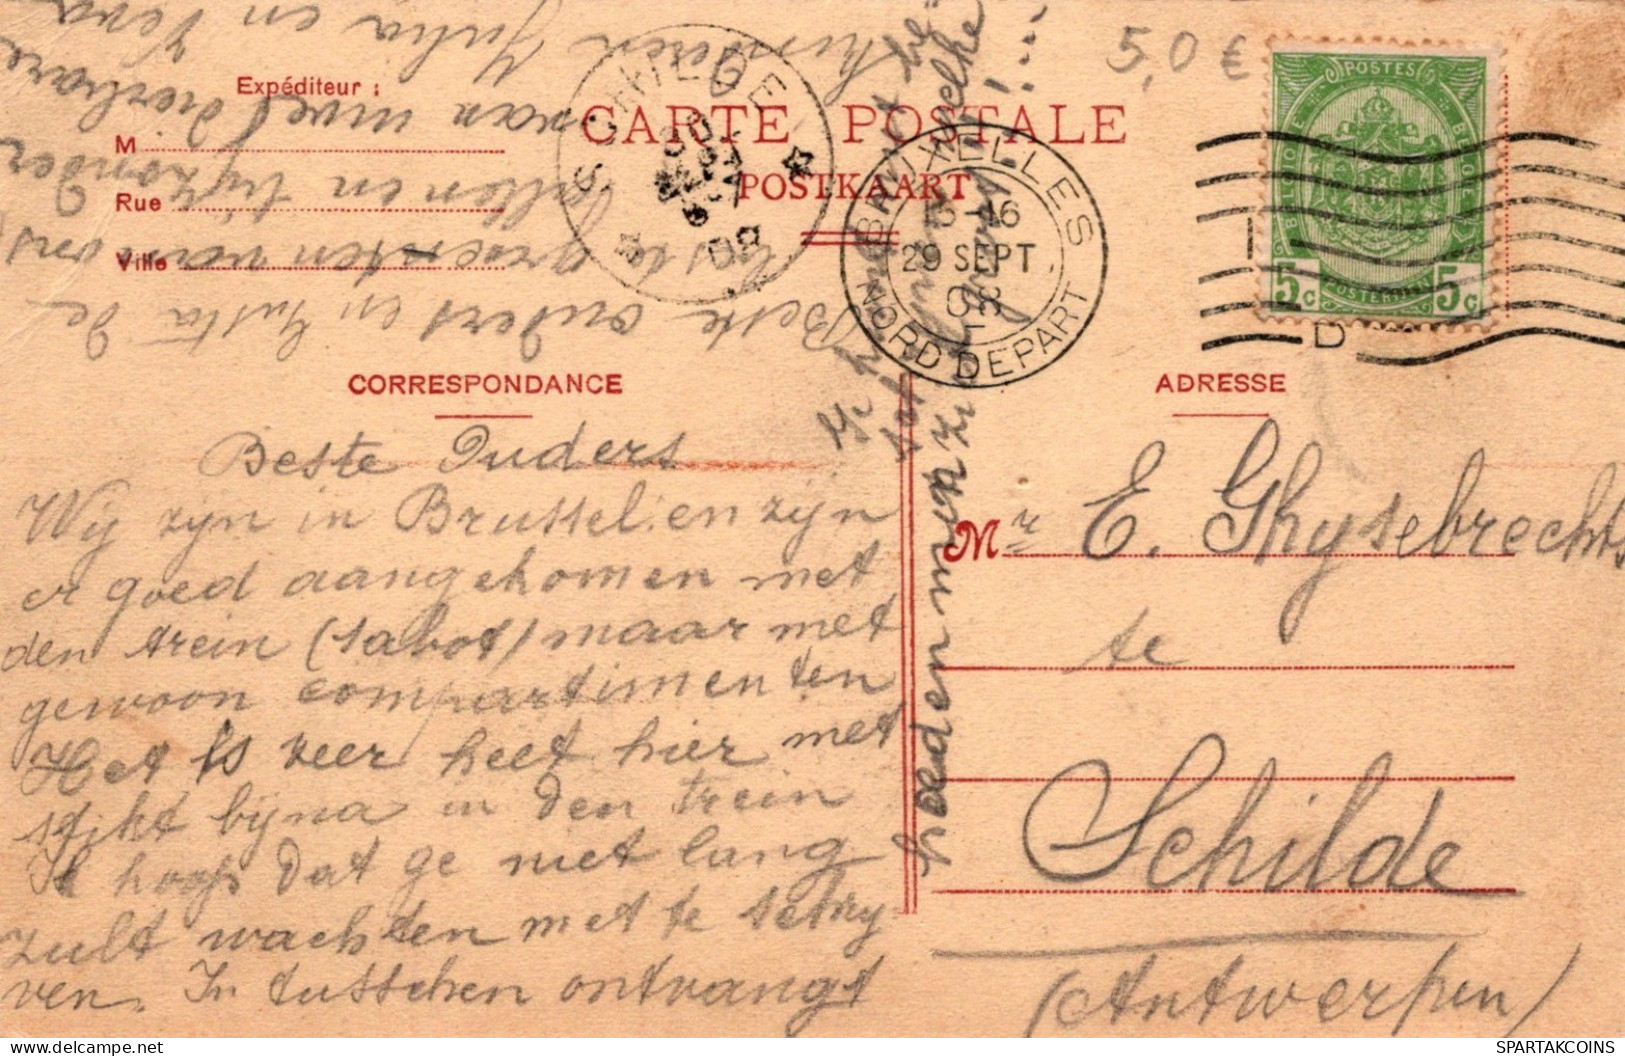 Expéditeur :
M
Rue
Ville
CARTE POSTALE
POSTKAART
SCHILDE
30
SEPT
08
BRUXELLES
15-16
29 SEPT
08
NORD DEPART
5,0 €
POSTES
BELGIQUE
5c POSTERIJEN 5c
D
CORRESPONDANCE
ADRESSE
Beste Ouders
Wij zyn in Brussel en zijn
er goed aangekomen met
den trein (sabot) maar met
gewoon compartimenten
Het is zeer heet hier met
stikt bijna in den trein
Ik hoop dat ge niet lang
zult wachten met te schry
ven. In tusschen ontvangt
Beste ouders en Julia de
groeten van ons
allen en byzonder
van uwe dierbare
kinderen Julia en
heeden
Mr E. Ghysebrechts
te
Schilde
(Antwerpen)
SPARTAKCOINS
delcampe.net